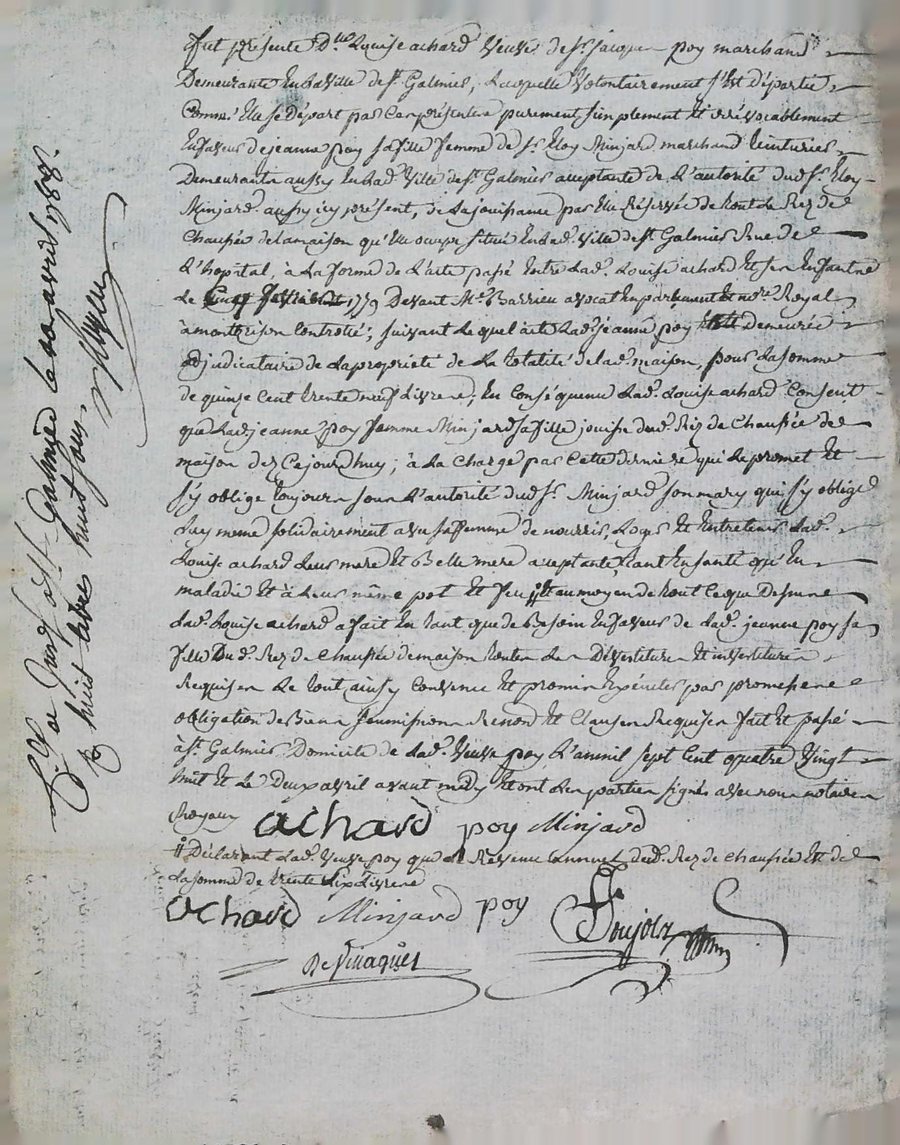 fut présente D.lle Louise achard veuve de sr. jacques poy marchand
Demeurante En la ville de st. Galmier, Laquelle volontairement s'est départie
Comme Elle se départ par Ces présentes purement, simplement Et irrévocablement
En faveur de jeanne poy sa fille femme de sr. Eloy Minjard marchand teinturier
Demeurante aussy En lad. ville de st. Galmier acceptante de L'autorité dud. sr. Eloy
Minjard aussy icy présent, de La jouissance par Elle Réservée de tout Le Rez de
Chaussée de la maison qu'Elle occupe située En lad. ville de st. Galmier Rue de
L'hopital, à La forme de L'acte passé Entre lad. Louise achard Et ses Enfants
Le 1779 Devant Me. Barrieu avocat En parlement Et notre. Royal
à montbrison Controllé; suivant Lequel acte Lad. jeanne poy Est demeurée
adjudicataire de La propriété de La totalité de lad. maison, pour La somme
de quinze Cent trente neuf Livres; En Conséquence Lad. Louise achard Consent
que Lad. jeanne poy femme Minjard sa fille jouisse dud. Rez de Chaussée de
maison dez Cejourdhuy; à La Charge par Cette dernière qui Le promet Et
s'y oblige toujours sous L'autorité dud. sr. Minjard son mary qui s'y oblige
Luy même solidairement avec sa femme de nourrir, Loger Et Entretenir Lad.
Louise achard Leur mere Et Belle mere acceptante, tant En santé que En
maladie Et à Leur même pot Et feu # au moyen de tout Ce que Dessus
Lad. Louise achard a fait En tant que de Besoin En faveur de Lad. jeanne poy sa
fille Dud. Rez de Chaussée de maison toutes Les Dévestitures Et investitures
Requises Le tout ainsy Convenu Et promis Exécuter par promesses
obligation de Biens soumissions Renond. Et Clauses Requises fait Et passé
à st. Galmier Domicile de Lad. veuve poy L'an mil sept Cent quatre vingt
huit Et Le Deux avril avant midy Et ont Les parties signés avec nous notaires
Royaux achard poy Minjard
# Déclarant Lad. veuve poy que Le Revenu annuel dud. Rez de Chaussée Est de
La somme de trente six Livres
achard Minjard poy
Pujolz
De Vinaquet
à st. Galmier Le avril 1788.
huit livres huit sous.